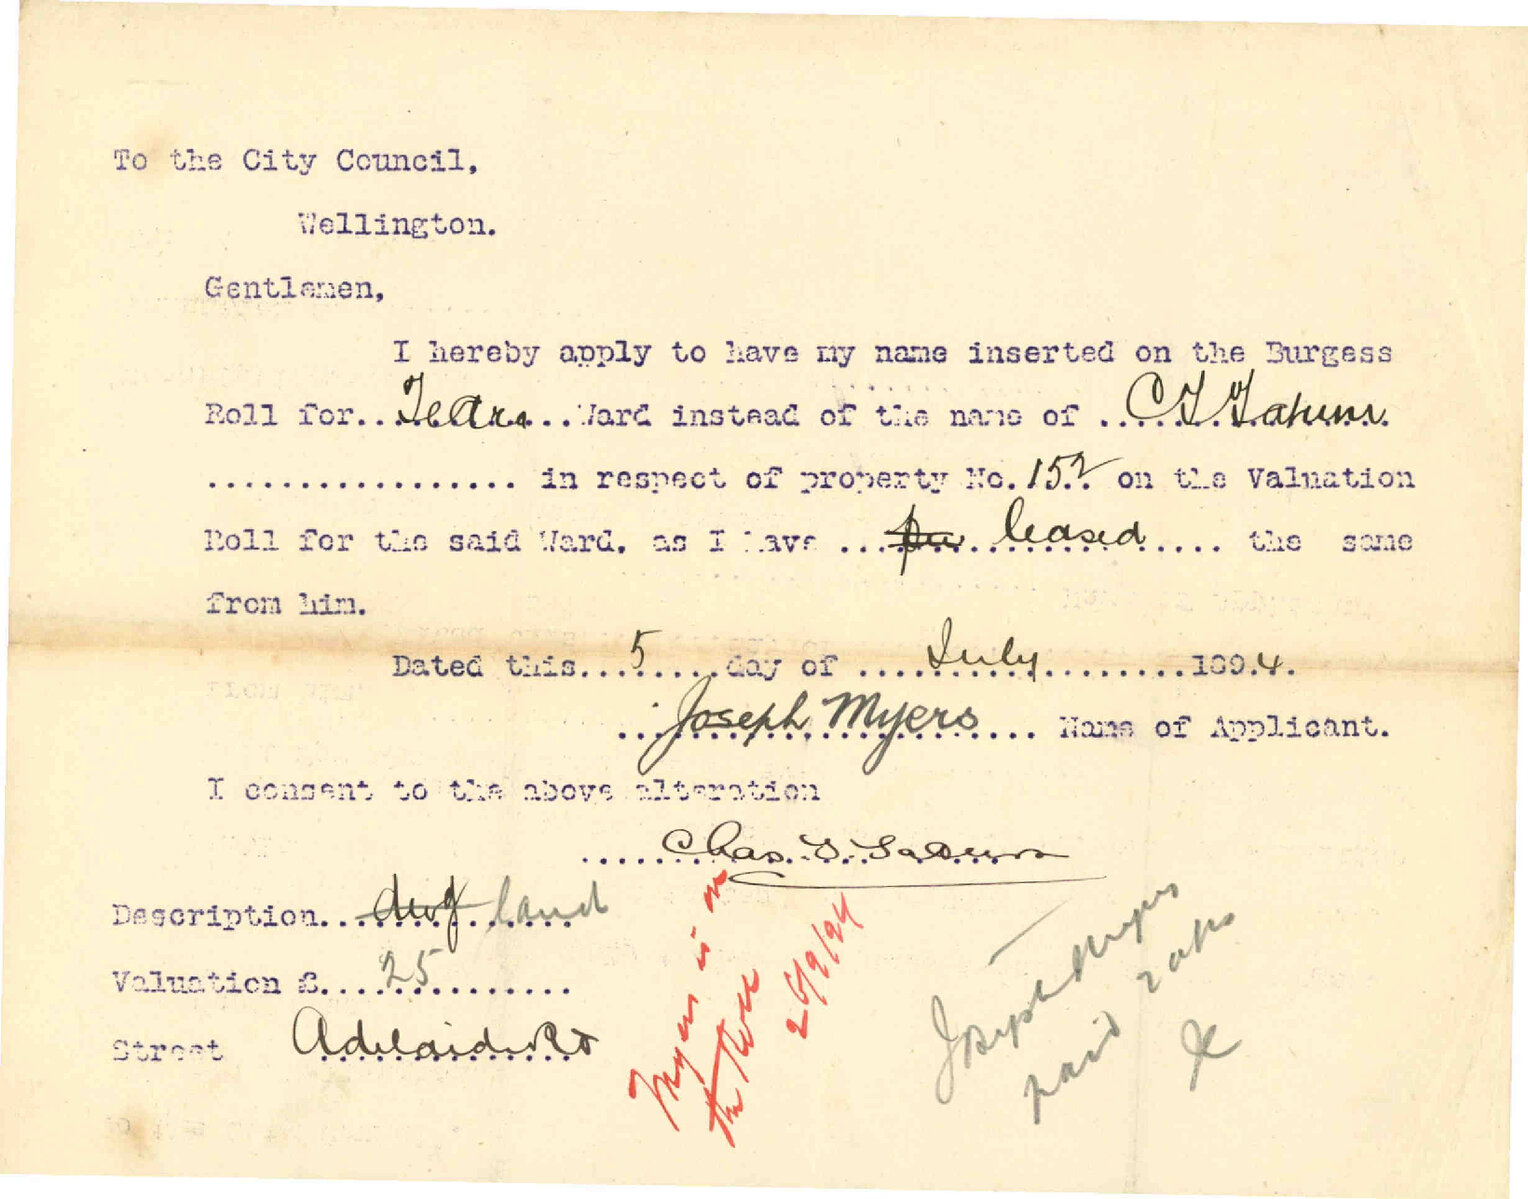 To the City Council,
Wellington.
Gentlemen,
I hereby apply to have my name inserted on the Burgess
Roll for..TeAro...Ward instead of the name of ..C T Tatum.
................. in respect of property No.152 on the Valuation
Roll for the said Ward, as I have ... leased .... the same
from him.
Dated this...5....day of ....July........1894.
..Joseph Myers... Name of Applicant.
I consent to the above alteration
.....Chas. T. Tatum
Description...dwg land
Valuation £...25.......
Street Adelaide Rd
Myers is on
the Roll
26/9/94
Joseph Myers
paid rates